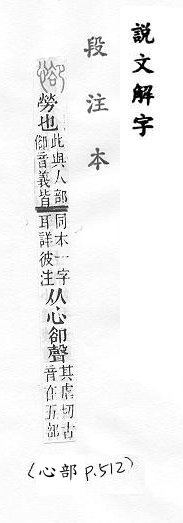 說文解字
段注本
勞也此與人部音義皆同本一字耳詳彼注从心卻聲其虐切古音在五部
(心部 P.512)